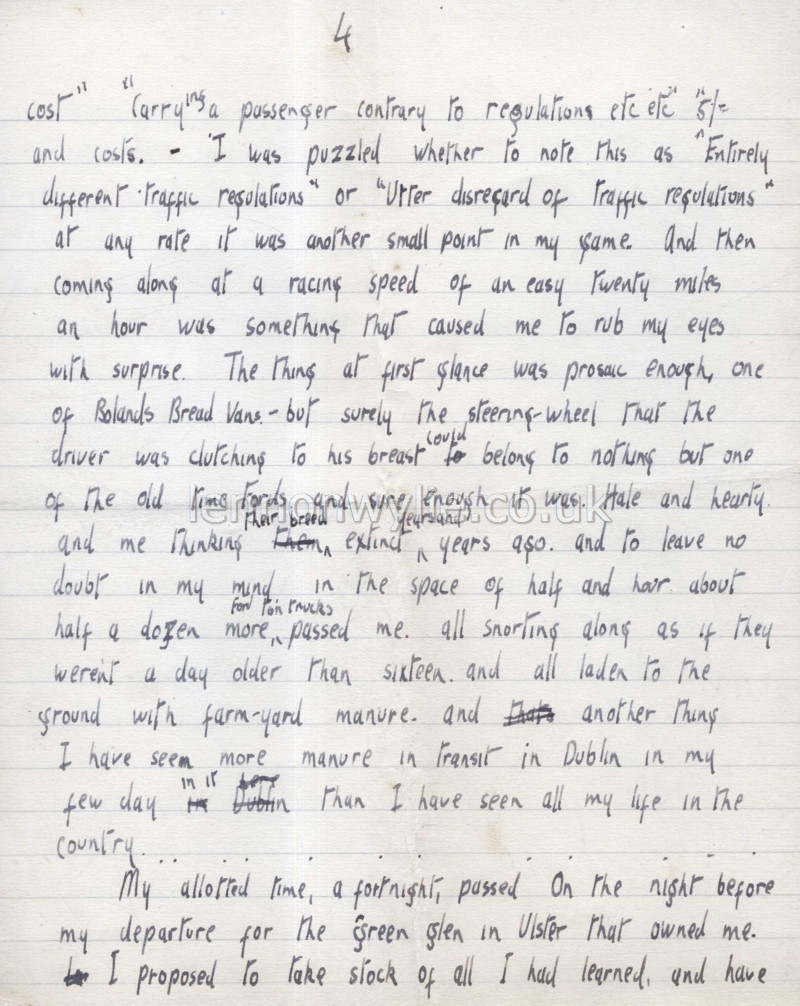 4
cost" "Carrying a passenger contrary to regulations etc etc" "5/=
and costs. - 'I was puzzled whether to note this as "Entirely
different traffic regulations" or "Utter disregard of traffic regulations"
at any rate it was another small point in my game. And then
coming along at a racing speed of an easy twenty miles
an hour was something that caused me to rub my eyes
with surprise. The thing at first glance was prosaic enough, one
of Bolands Bread Vans. - but surely the steering-wheel that the
driver was clutching to his breast to could belong to nothing but one
of the old time Fords and sure enough it was. Hale and hearty.
lennonwylie.co.uk
and me thinking them their breed extinct years and years ago. and to leave no
doubt in my mind in the space of half and hour about
half a dozen more Ford ton trucks passed me. all snorting along as if they
werent a day older than sixteen. and all laden to the
ground with farm-yard manure. and thats another thing
I have seen more manure in transit in Dublin in my
few day in Dublin in it here than I have seen all my life in the
country.
My allotted time, a fortnight, passed On the night before
my departure for the Green glen in Ulster that owned me.
I proposed to take stock of all I had learned, and have